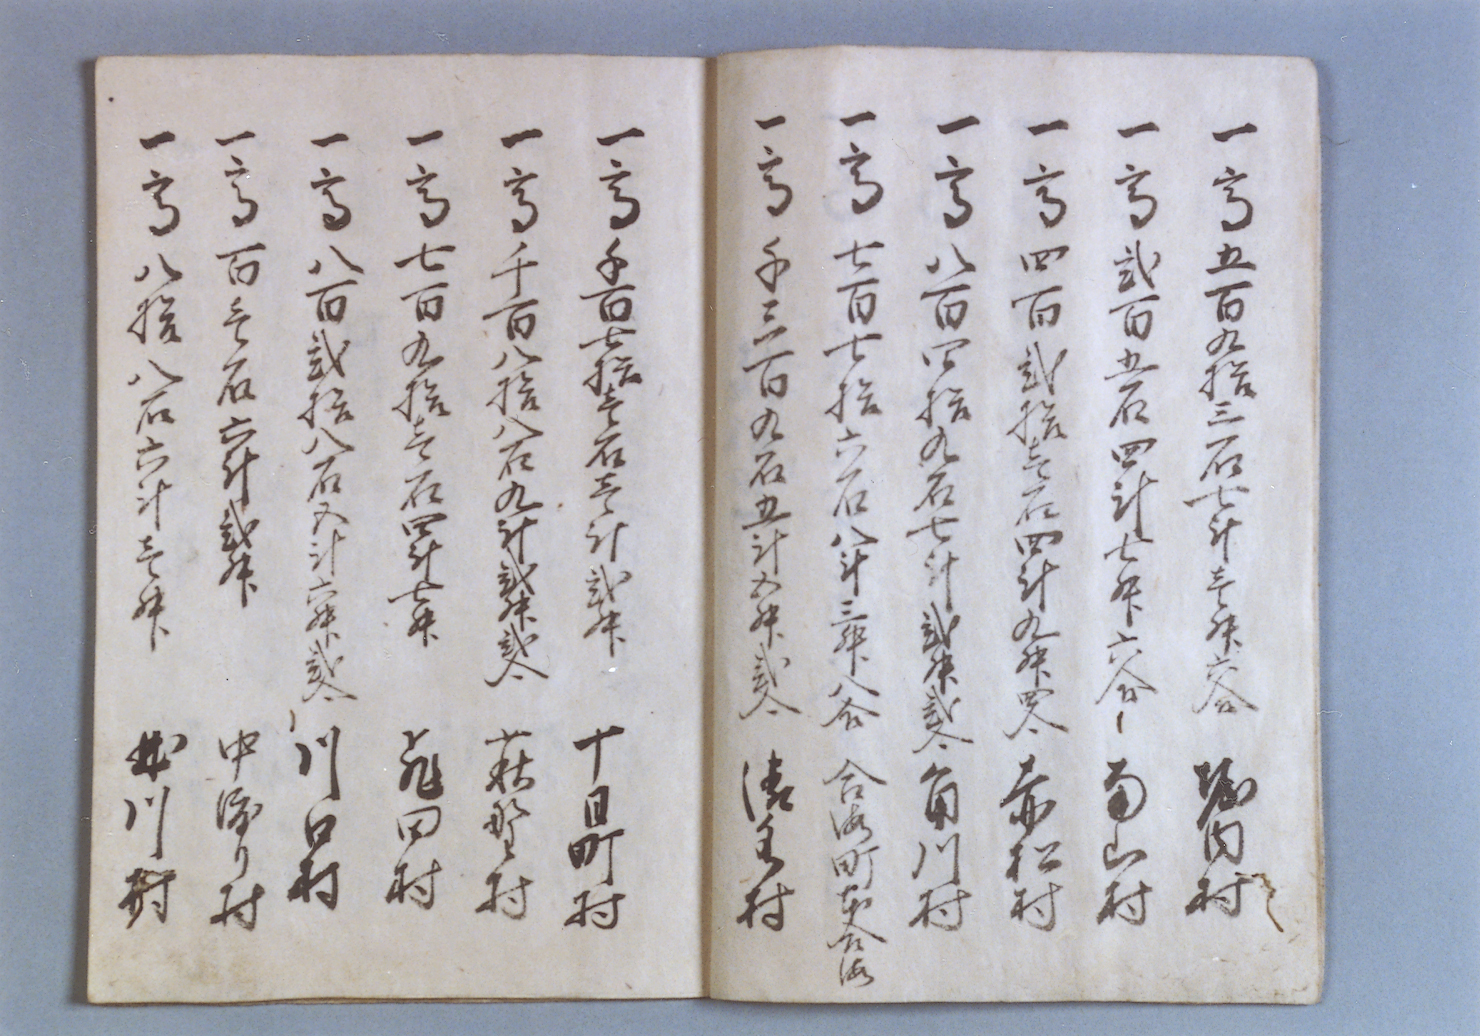 一高五百九拾三石七斗壱升六合 堀内村
一高弐百五石四斗七升六合 南山村
一高四百弐拾壱石四斗九升四合 赤松村
一高八百四拾九石七斗弐升弐合 角川村
一高七百七拾六石八斗三升八合 合海町本合海
一高千三百九石五斗五升弐合 清水村
一高千百七拾壱石壱斗弐升 十日町村
一高千百八拾八石九斗弐升弐合 萩野村
一高七百九拾壱石四斗七升 飛田村
一高八百弐拾八石五斗六升弐合 川口村
一高百壱石六斗弐升 中渡り村
一高八拾八石六斗壱升 川村